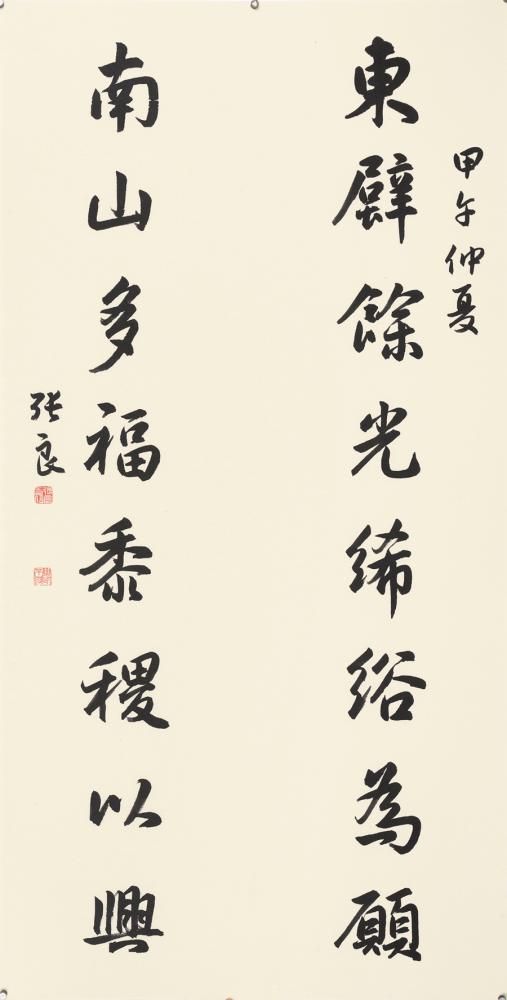 東壁餘光絺綌為願
甲午仲夏
南山多福黍稷以興
张良